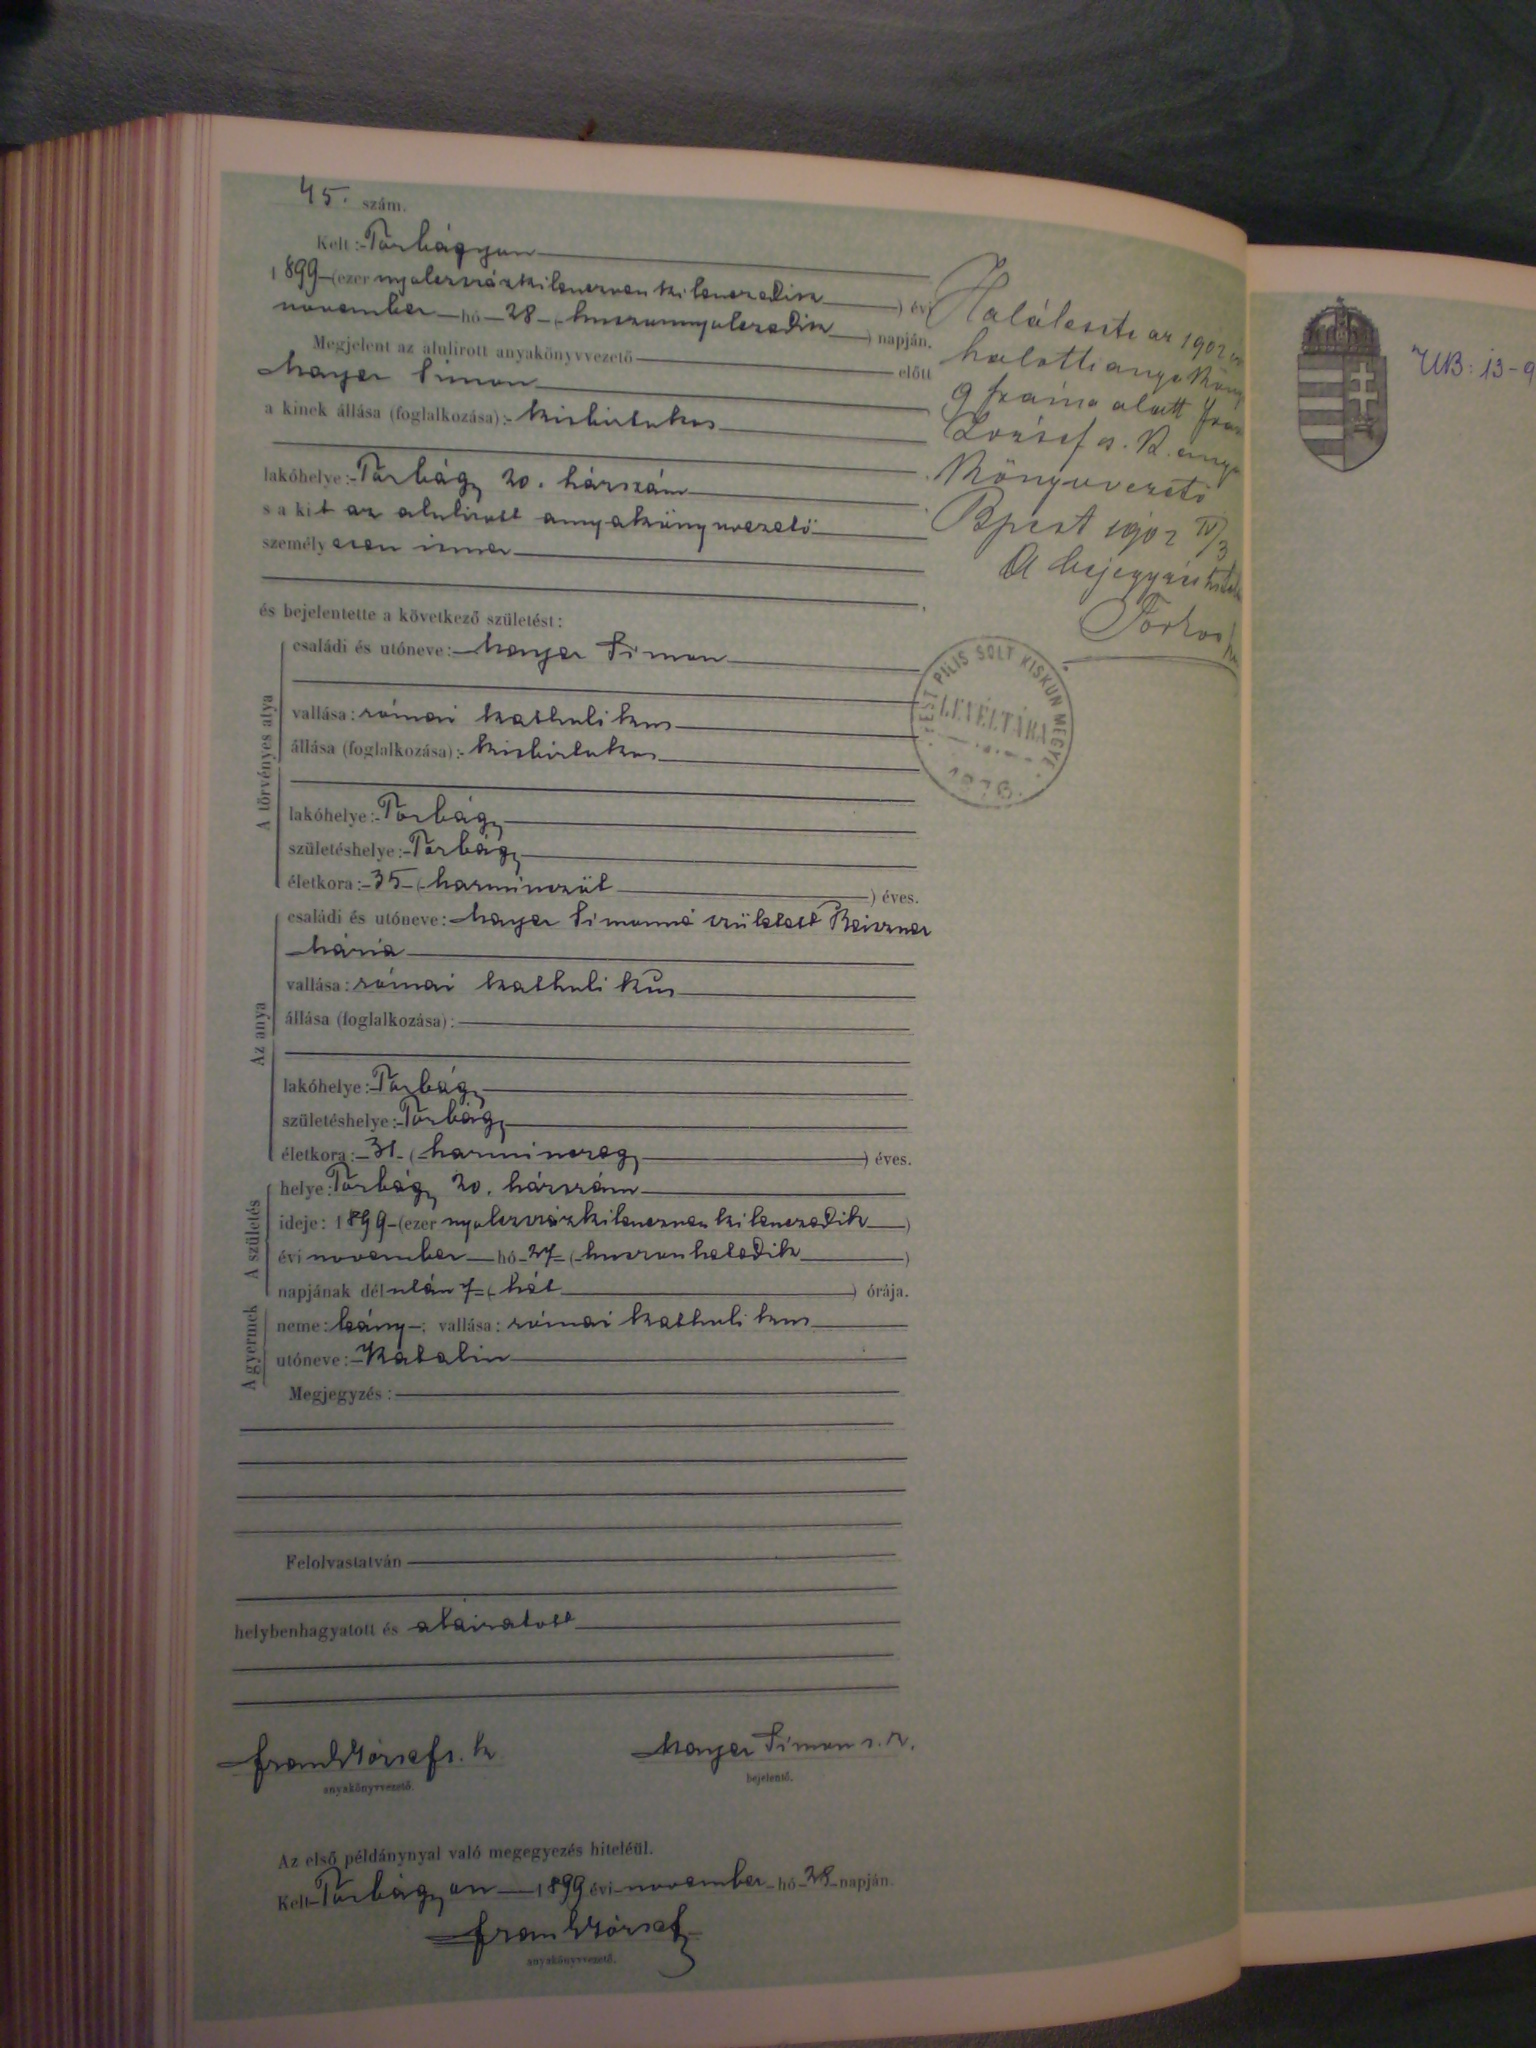 45. szám.
Kelt: Torbágyon
1899 (ezer nyolczszázkilenczvenkilenczedik) évi
november hó 28 (huszonnyolczadik) napján.
Megjelent az alulirott anyakönyvvezető előtt
Mayer Simon
a kinek állása (foglalkozása): kisbirtokos
lakóhelye: Torbágy 20. házszám
s a kit az alulirott anyakönyvvezető
személyesen ismer
és bejelentette a következő születést:
A törvényes atya
családi és utóneve: Mayer Simon
vallása: római katholikus
állása (foglalkozása): kisbirtokos
lakóhelye: Torbágy
születéshelye: Torbágy
életkora: 35 (harminczöt) éves.
Az anya
családi és utóneve: Mayer Simonné született Reiszner
Mária
vallása: római katholikus
állása (foglalkozása):
lakóhelye: Torbágy
születéshelye: Torbágy
életkora: 31 (harminczegy) éves.
A születés
helye: Torbágy 20. házszám
ideje: 1899 (ezer nyolczszázkilenczvenkilenczedik)
évi november hó 27 (huszonhetedik)
napjának délután 7 (hét) órája.
A gyermek
neme: leány; vallása: római katholikus
utóneve: Katalin
Megjegyzés:
Felolvastatván
helybenhagyatott és aláiratott
Frank József s. k.
anyakönyvvezető.
Mayer Simon s. k.
bejelentő.
Az első példánynyal való megegyezés hiteléül.
Kelt Torbágyon 1899 évi november hó 28 napján.
Frank József
anyakönyvvezető.
Haláleste az 1902
halotti anyakönyv
9 száma alatt
József s. k. anya
könyvvezető
Bpest 1902 IV/3
A bejegyzés
PEST PILIS SOLT KISKUN MEGYE
LEVÉLTÁRA
1876.
UB: 13-9